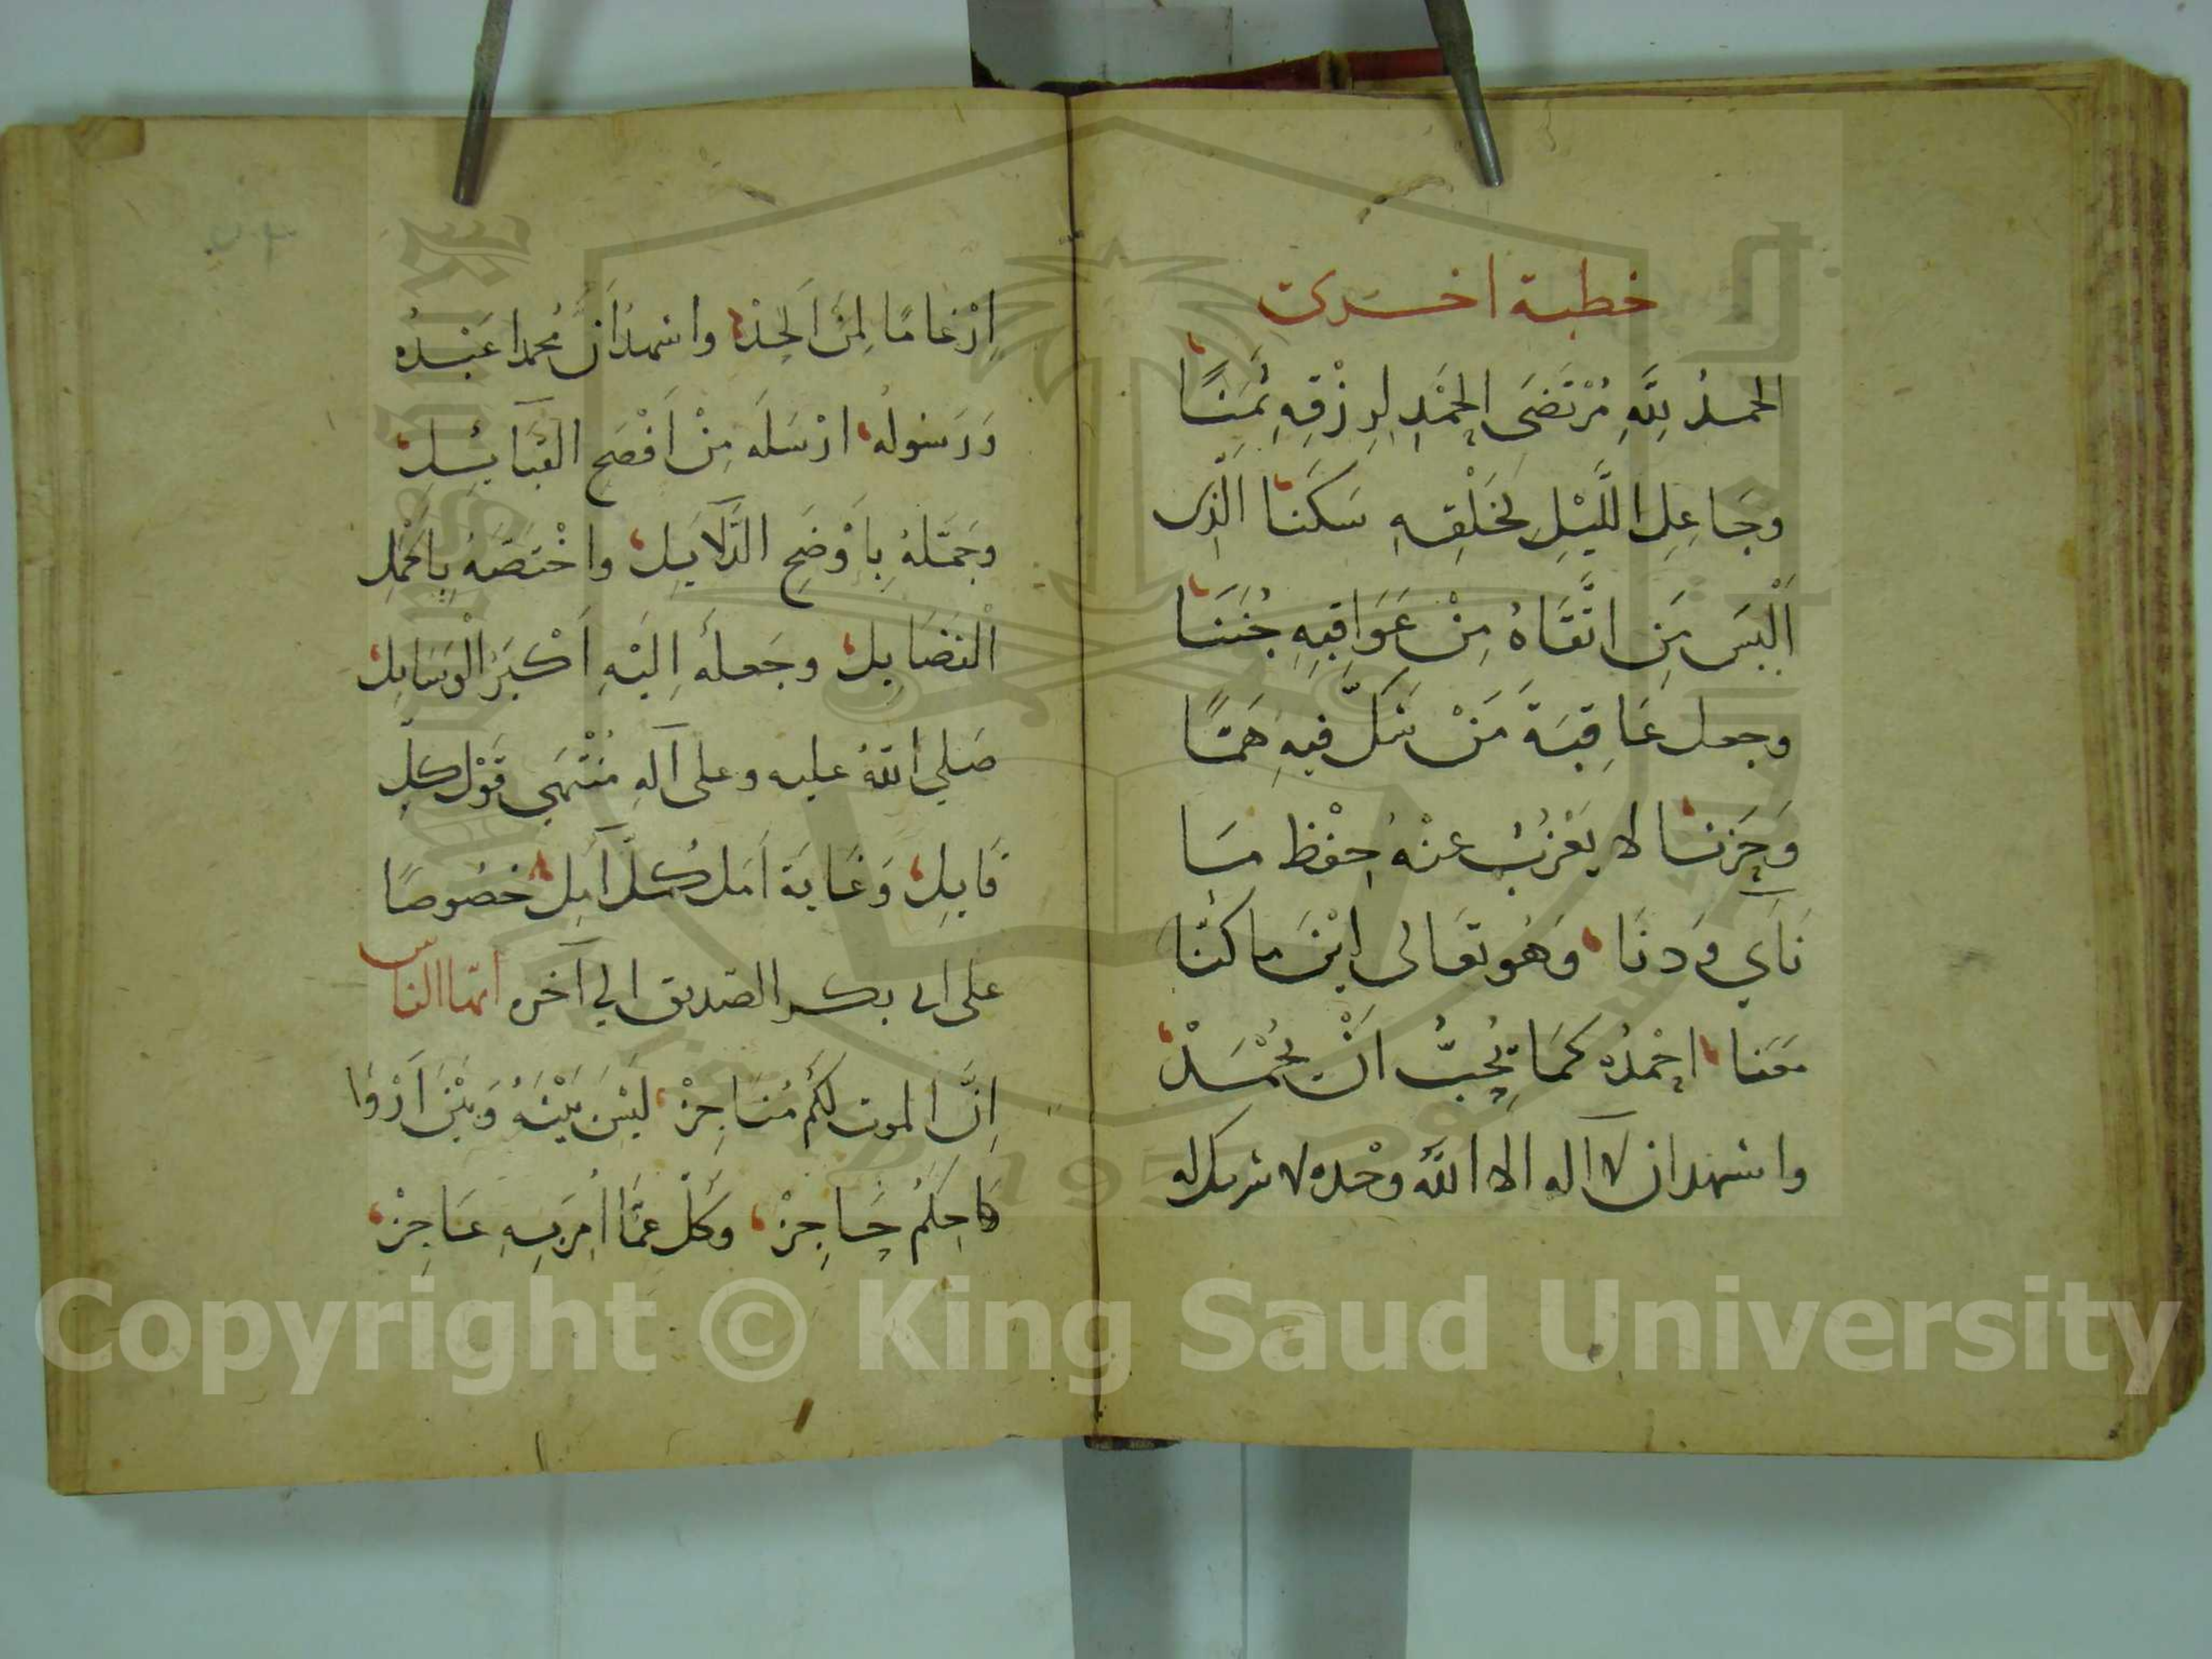 خطبة اخرى
الحمدُ لِلَّهِ مُرْتَضَى الحَمْدِ لِرِزْقِهِ ثَمَنًا
وجَاعِلِ اللَّيْلِ لِخَلْقِهِ سَكَنًا الَّذِى
اَلْبَسَ مَنِ اتَّقَاهُ مِنْ عَوَاقِبِهِ جُنَنًا
وجعل عَاقِبَةَ مَنْ شَكَّ فيهِ هَمًّا
وَحَزَنًا لا يَعْزُبُ عنْهُ حِفْظ مَا
نَآي وَدنَا وَهُو تعَالى اَيْنَ ما كنّا
مَعَنا احْمدُه كمَا يُحِبُّ انْ يُحْمَدْ
واشهد ان لا اله الا اللَّهُ وحْده لا شريك له
اِرْغامًا لِمَنْ اَلحَدْ واشهدُ اَنَّ مُحمدًا عَبْدُه
وَرَسُولُه ارْسَلَه مِنْ اَفْصَحِ القَبَآئِلِ
وجَمَّلهُ بِاَوْضَحِ الدَّلَايِلِ واخْتَصَّهُ بِاَكْمَلِ
الْفَضَايِلِ وجَعلَهُ اِلَيْهِ اَكْبَرَ الْوَسَايِلِ
صَلي اللهُ عليه وعلى آلهِ مُنْتَهَى قَوْل كلِّ
قَايِلِ وَغَايَةَ اَمَل كُلّ آمِلِ خصُوصًا
على ابى بكر الصّديق الي آخره ايّها الناس
اِنَّ الموت لكُمْ مُنَاجِزْ لَيْسَ بَيْنَهُ وَبَيْنَ اَرْوَا
حِكُمْ حَاجِزْ وَكلّ عمَّا اُمِرَ بِهِ عَاجِزْ
Copyright © King Saud University